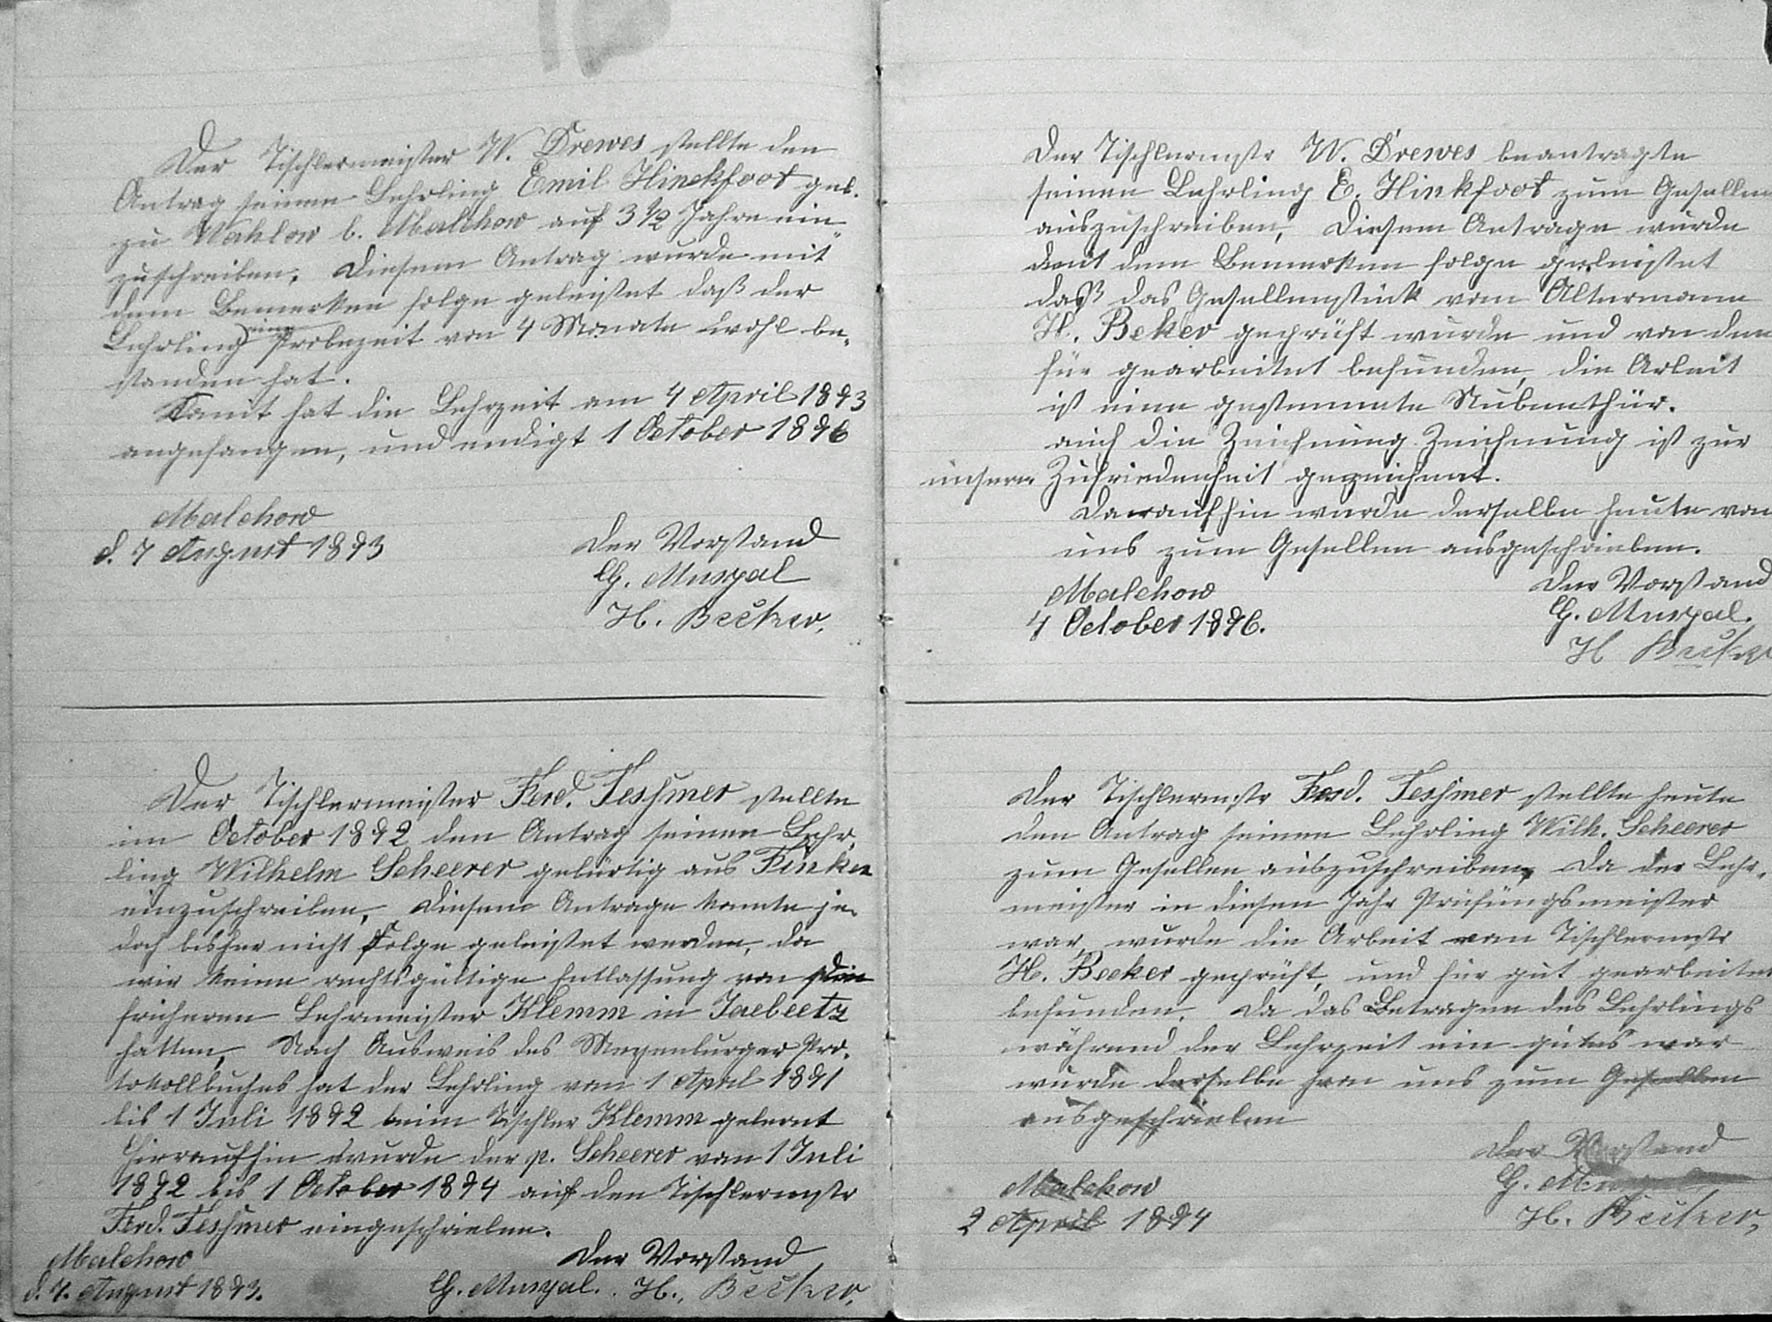 Der Tischlermeister W. Drewes stellte den
Antrag seinen Lehrling Emil Hinckfoot geb.
zu Wahlow b. Malchow auf 3 1/2 Jahre ein-
zuschreiben. Diesem Antrag wurde mit
dem Bemerken folge geleistet daß der
Lehrling eine Probezeit von 4 Monate wohl be-
standen hat.
Somit hat die Lehrzeit am 4 April 1893
angefangen, und endigt 1 October 1896
Malchow
d. 7 August 1893
Der Vorstand
H. Becker.
Der Tischlermeister Ferd. Tessmer stellte
im October 1892 den Antrag seinen Lehr-
ling Wilhelm Scheerer gebürtig aus Finken
einzuschreiben, Diesem Antrage konnte je-
doch bisher nicht Folge geleistet werden, da
wir keine rechtsgültige Entlassung von
früheren Lehrmeister Klemm in Jaebeetz
hatten, Nach Ausweis des Meyenburger Pro-
tokollbuches hat der Lehrling vom 1 April 1891
bis 1 Juli 1892 beim Tischler Klemm gelernt
Hieraufhin wurde der p. Scheerer vom 1 Juli
1892 bis 1 October 1894 auf den Tischlermstr
Ferd. Tessmer eingeschrieben.
Malchow
d. 7. August 1893.
Der Vorstand
H. Becker.
Der Tischlermstr W. Drewes beantragte
seinen Lehrling E. Hinkfoot zum Gesellen
auszuschreiben, Diesem Antrage wurde
mit dem Bemerken folge geleistet
daß das Gesellenstück vom Altermann
H. Beker geprüft wurde und von dem
für gearbeitet befunden, die Arbeit
ist eine gestemmte Stubenthür.
auch die Zeichnung Zeichnung ist zur
unsern Zufriedenheit gezeichnet.
Daraufhin wurde derselbe heute von
uns zum Gesellen ausgeschrieben.
Malchow
4 October 1896.
Der Vorstand
H Becker
Der Tischlermstr Ferd. Tessmer stellte heute
den Antrag seinen Lehrling Wilh. Scheerer
zum Gesellen auszuschreiben, Da der Lehr-
meister in diesen Jahr Prüfungsmeister
war, wurde die Arbeit vom Tischlermstr
H. Becker geprüft, und für gut gearbeitet
befunden. Da das Betragen des Lehrlings
während der Lehrzeit ein gutes war
wurde derselbe von uns zum Gesellen
ausgeschrieben
Malchow
2 April 1894
Der Vorstand
H. Becker,